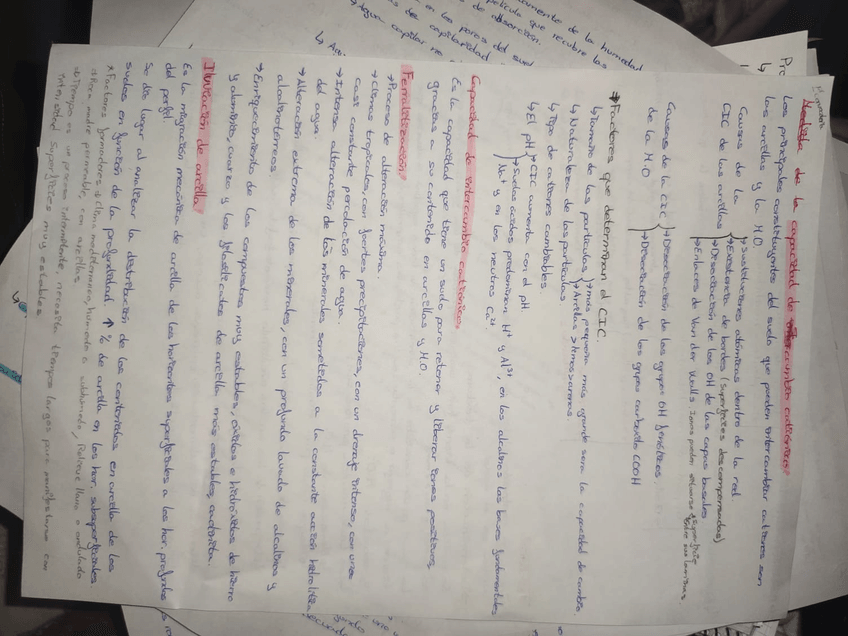 Medida de la capacidad de intercambio catiónico
Los principales constituyentes del suelo que pueden intercambiar cationes son
las arcillas y la M.O.
Causas de la CIC de las arcillas
→ Sustituciones atómicas dentro de la red.
→ Existencia de bordes (superficies descompensadas)
→ Disociación de los OH de las capas basales
→ Enlaces de Van der Waals
Causas de la CIC de la M.O
→ Disociación de los grupos OH fenólicos
→ Disociación de los grupos carboxilo COOH
→ Factores que determinan el CIC.
↳ Tamaño de las partículas → mas pequeña más grande sera la capacidad de cambio
→ Arcillas > limos > arenas.
↳ Naturaleza de las partículas
↳ Tipo de cationes cambiables
↳ El pH → CIC aumenta con el pH
→ Suelos ácidos predominan H⁺ y Al³⁺, en los alcalinos las bases fundamentales
Na⁺ y en los neutros Ca²⁺
Capacidad de intercambio catiónico
Es la capacidad que tiene un suelo para retener y liberar iones positivos,
gracias a su contenido en arcillas y M.O.
Ferralitización
→ Proceso de alteración máxima.
→ Climas tropicales, con fuertes precipitaciones, con un drenaje intenso, con una
casi constante percolación de agua.
→ Intensa alteración de los minerales sometidos a la constante acción hidrolítica
del agua.
→ Alteración extrema de los minerales, con un profundo lavado de alcalinos y
alcalinotérreos.
→ Enriquecimiento de los compuestos muy estables, óxidos o hidróxidos de hierro
y aluminio, cuarzo y los filosilicatos de arcilla más estables, caolinita.
Iluviación de arcilla
Es la migración mecánica de arcilla de los horizontes superficiales a los hor. profundos
del perfil.
Se dio lugar al analizar la distribución de los contenidos en arcilla de los
suelos en función de la profundidad ↑ % de arcilla en los hor. subsuperficiales
* Factores formadores: Clima mediterraneo, humedo o subhúmedo, Relieve llano o ondulado
Roca madre permeable, con arcillas.
Tiempo es un proceso intermitente, necesita tiempos largos para manifestarse con
intensidad Superficies muy estables